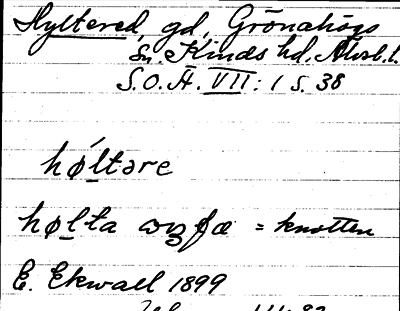 Hyltered, gd, Grönahögs
sn. Kinds hd. Älvsb. l.
S.O.Ä. VII: 1 s. 38
hǿltare
hølta = knotten
E. Ekwall 1899